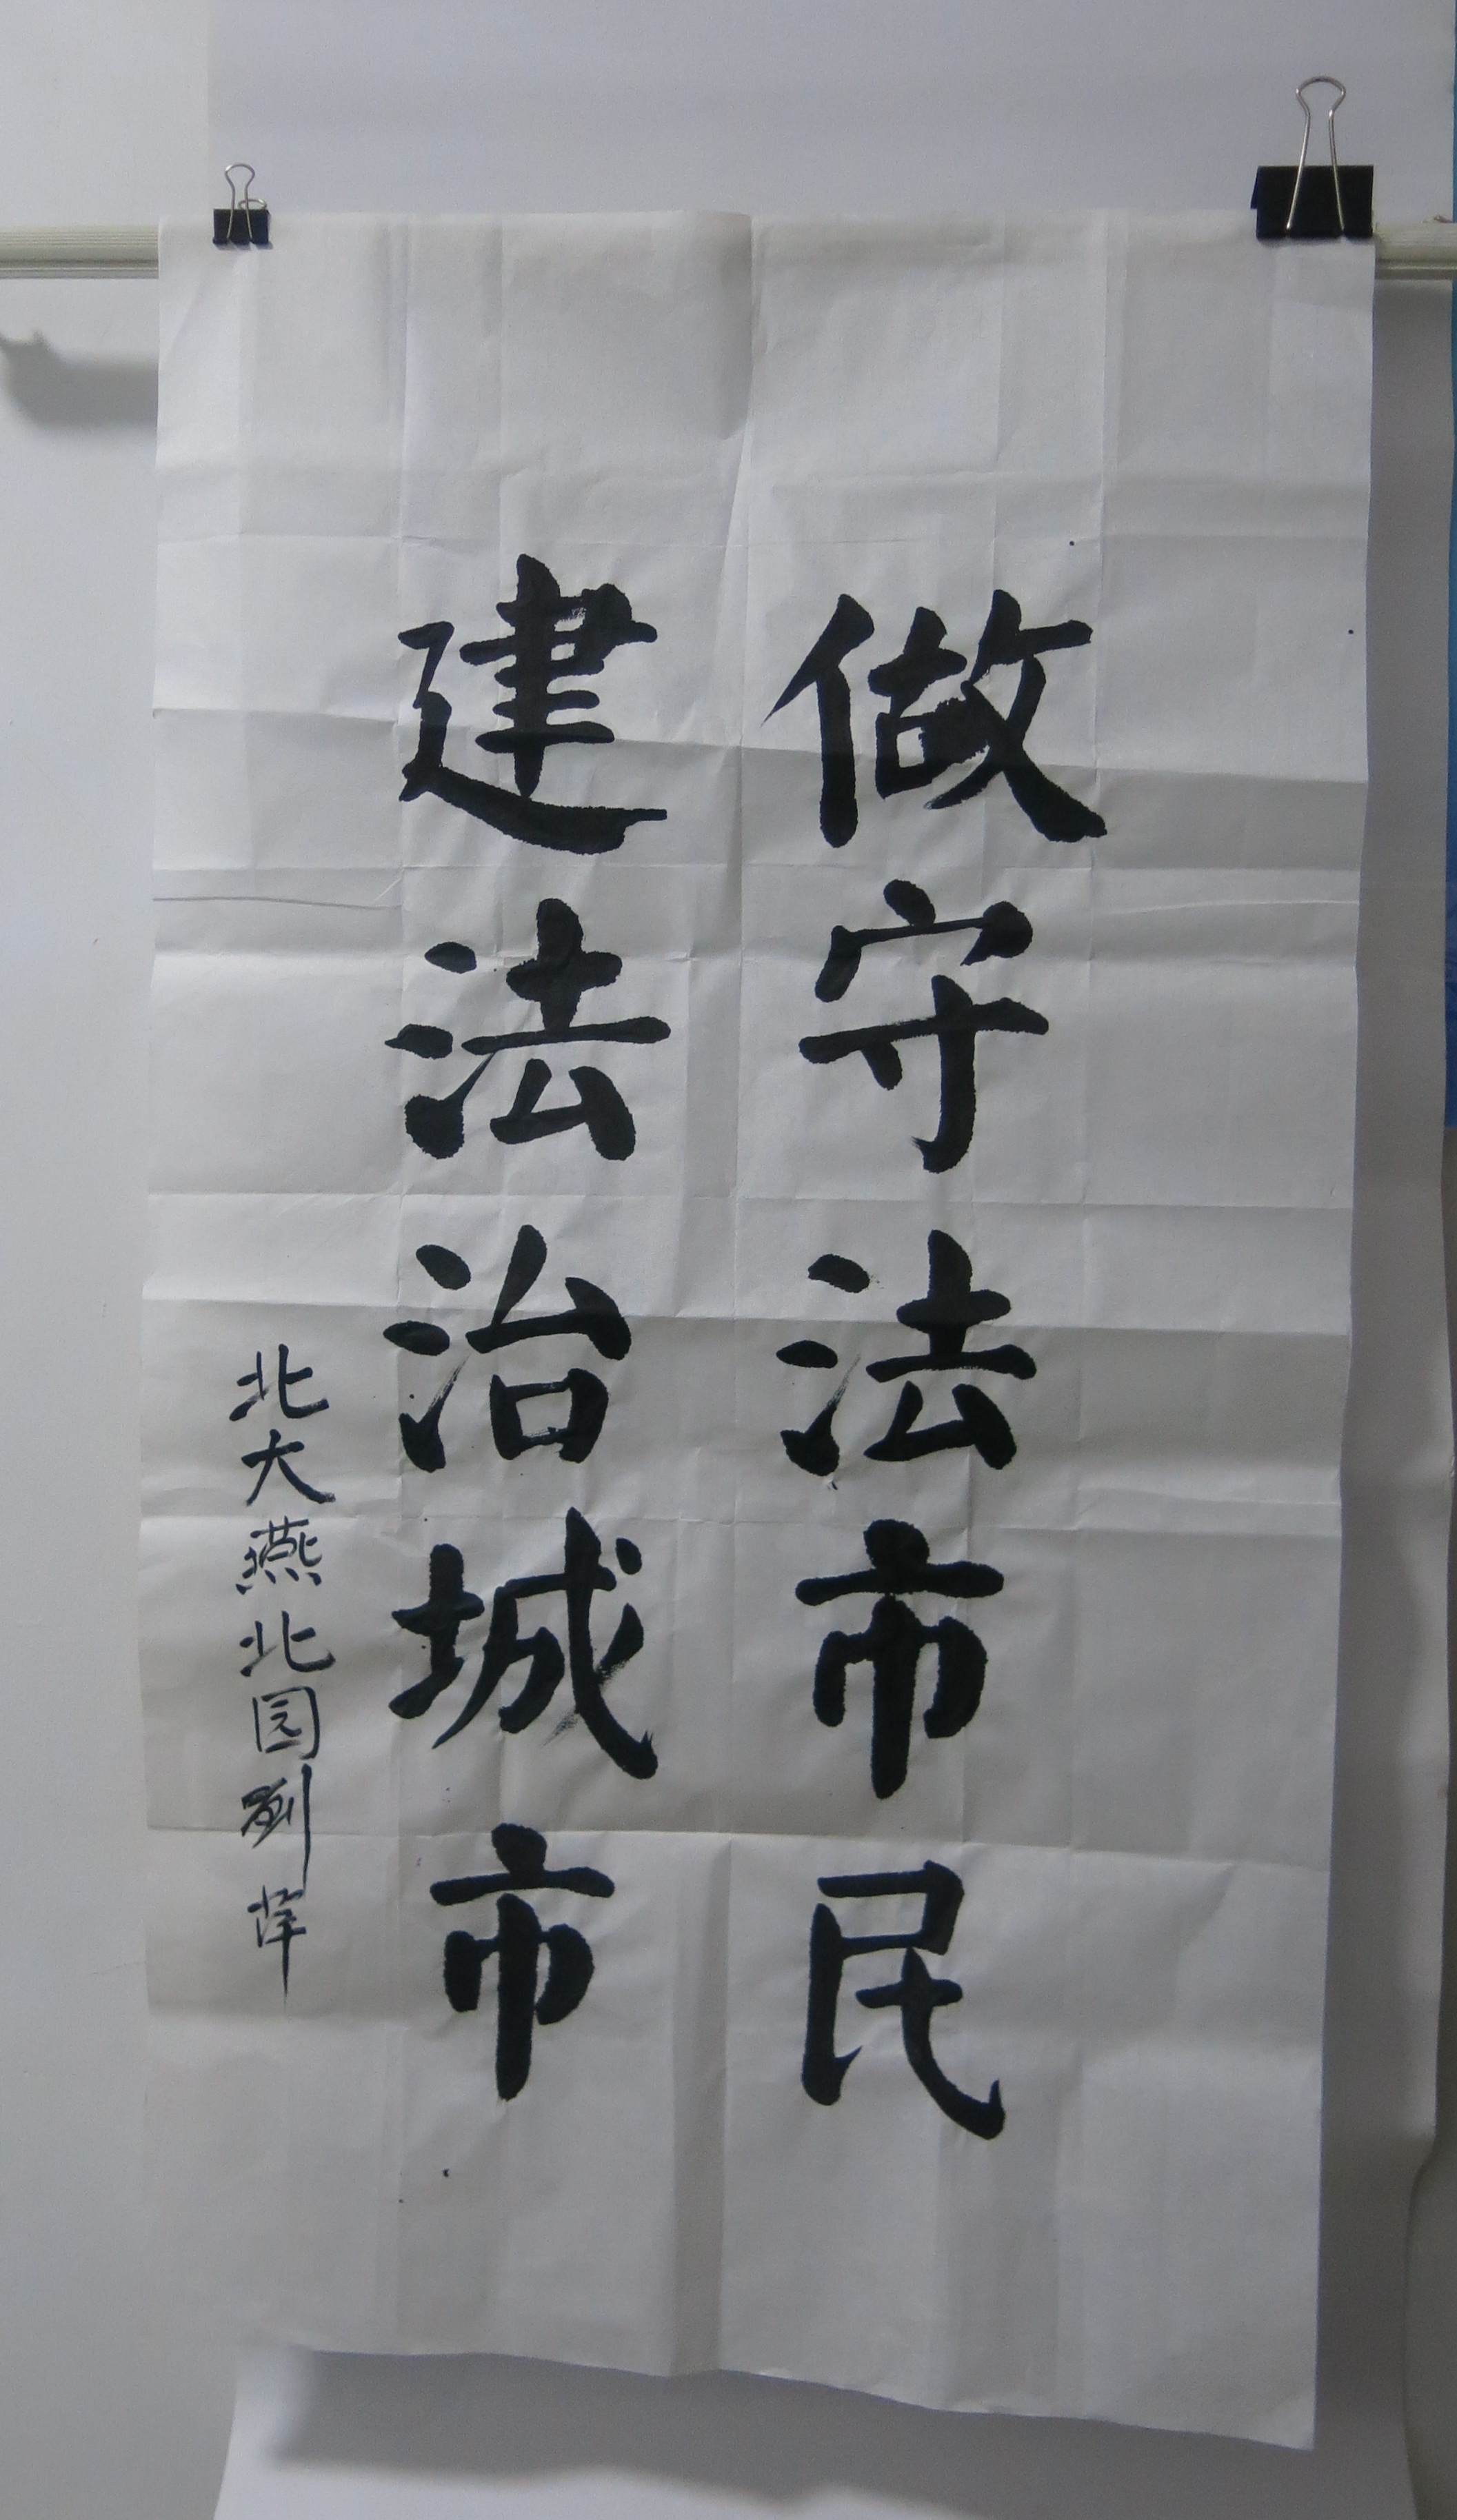 做守法市民
建法治城市
北大燕北园刘萍